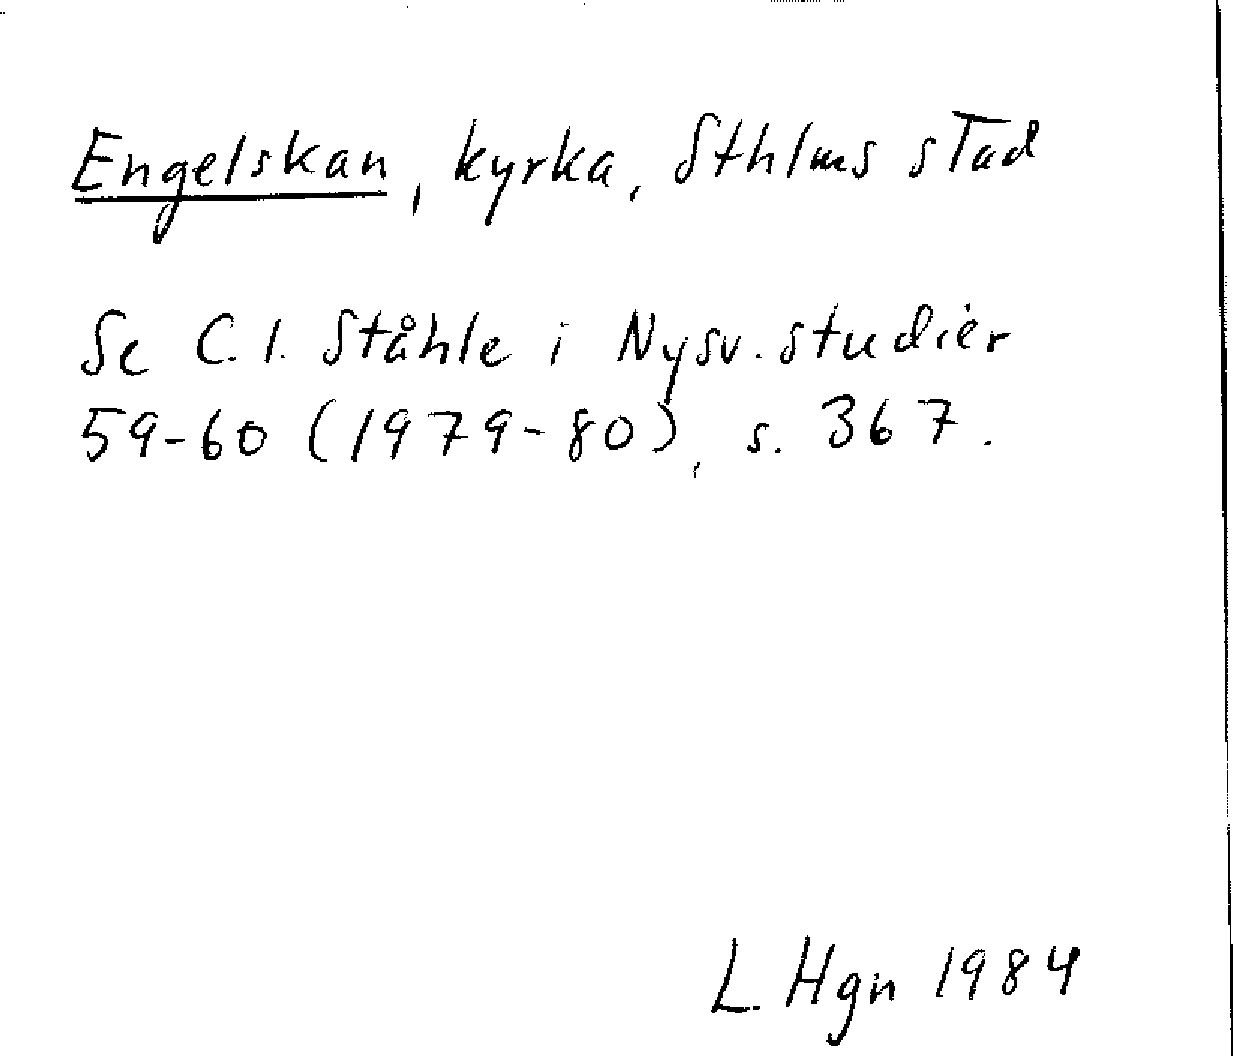 Engelskan, kyrka, Sthlms stad
Se C.I. Ståhle i Nysv. studier
59-60 (1979-80), s. 367.
L. Hgn 1984